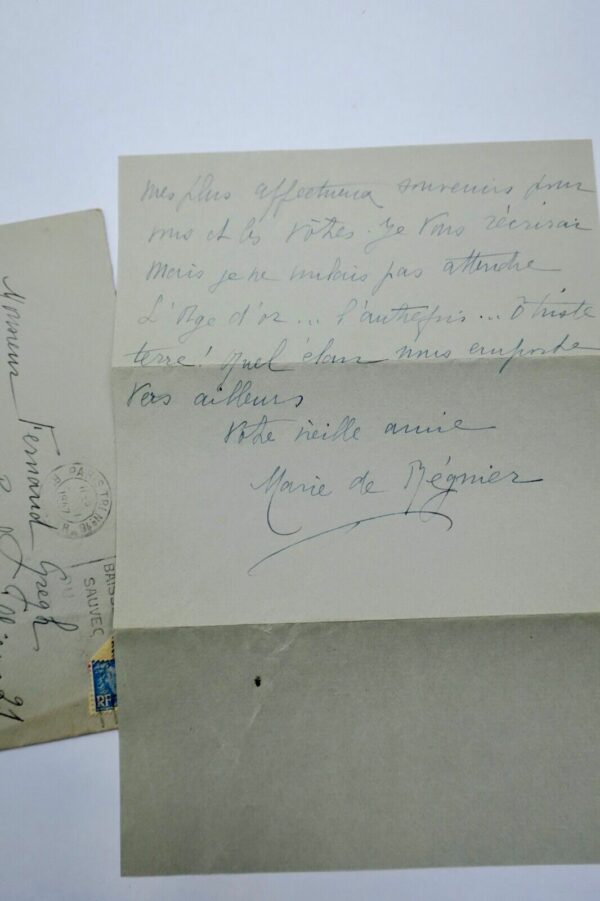 mes plus affectueux souvenirs pour
vous et les vôtres. Je vous récrirai
mais je ne voulais pas attendre
L'Age d'or... l'autrefois... O triste
terre! Quel élan nous emporte
vers ailleurs
Votre vieille amie
Marie de Régnier
Monsieur Fernand Gregh
PARIS TRI No
1947
BAISS
SAUVEG
RF